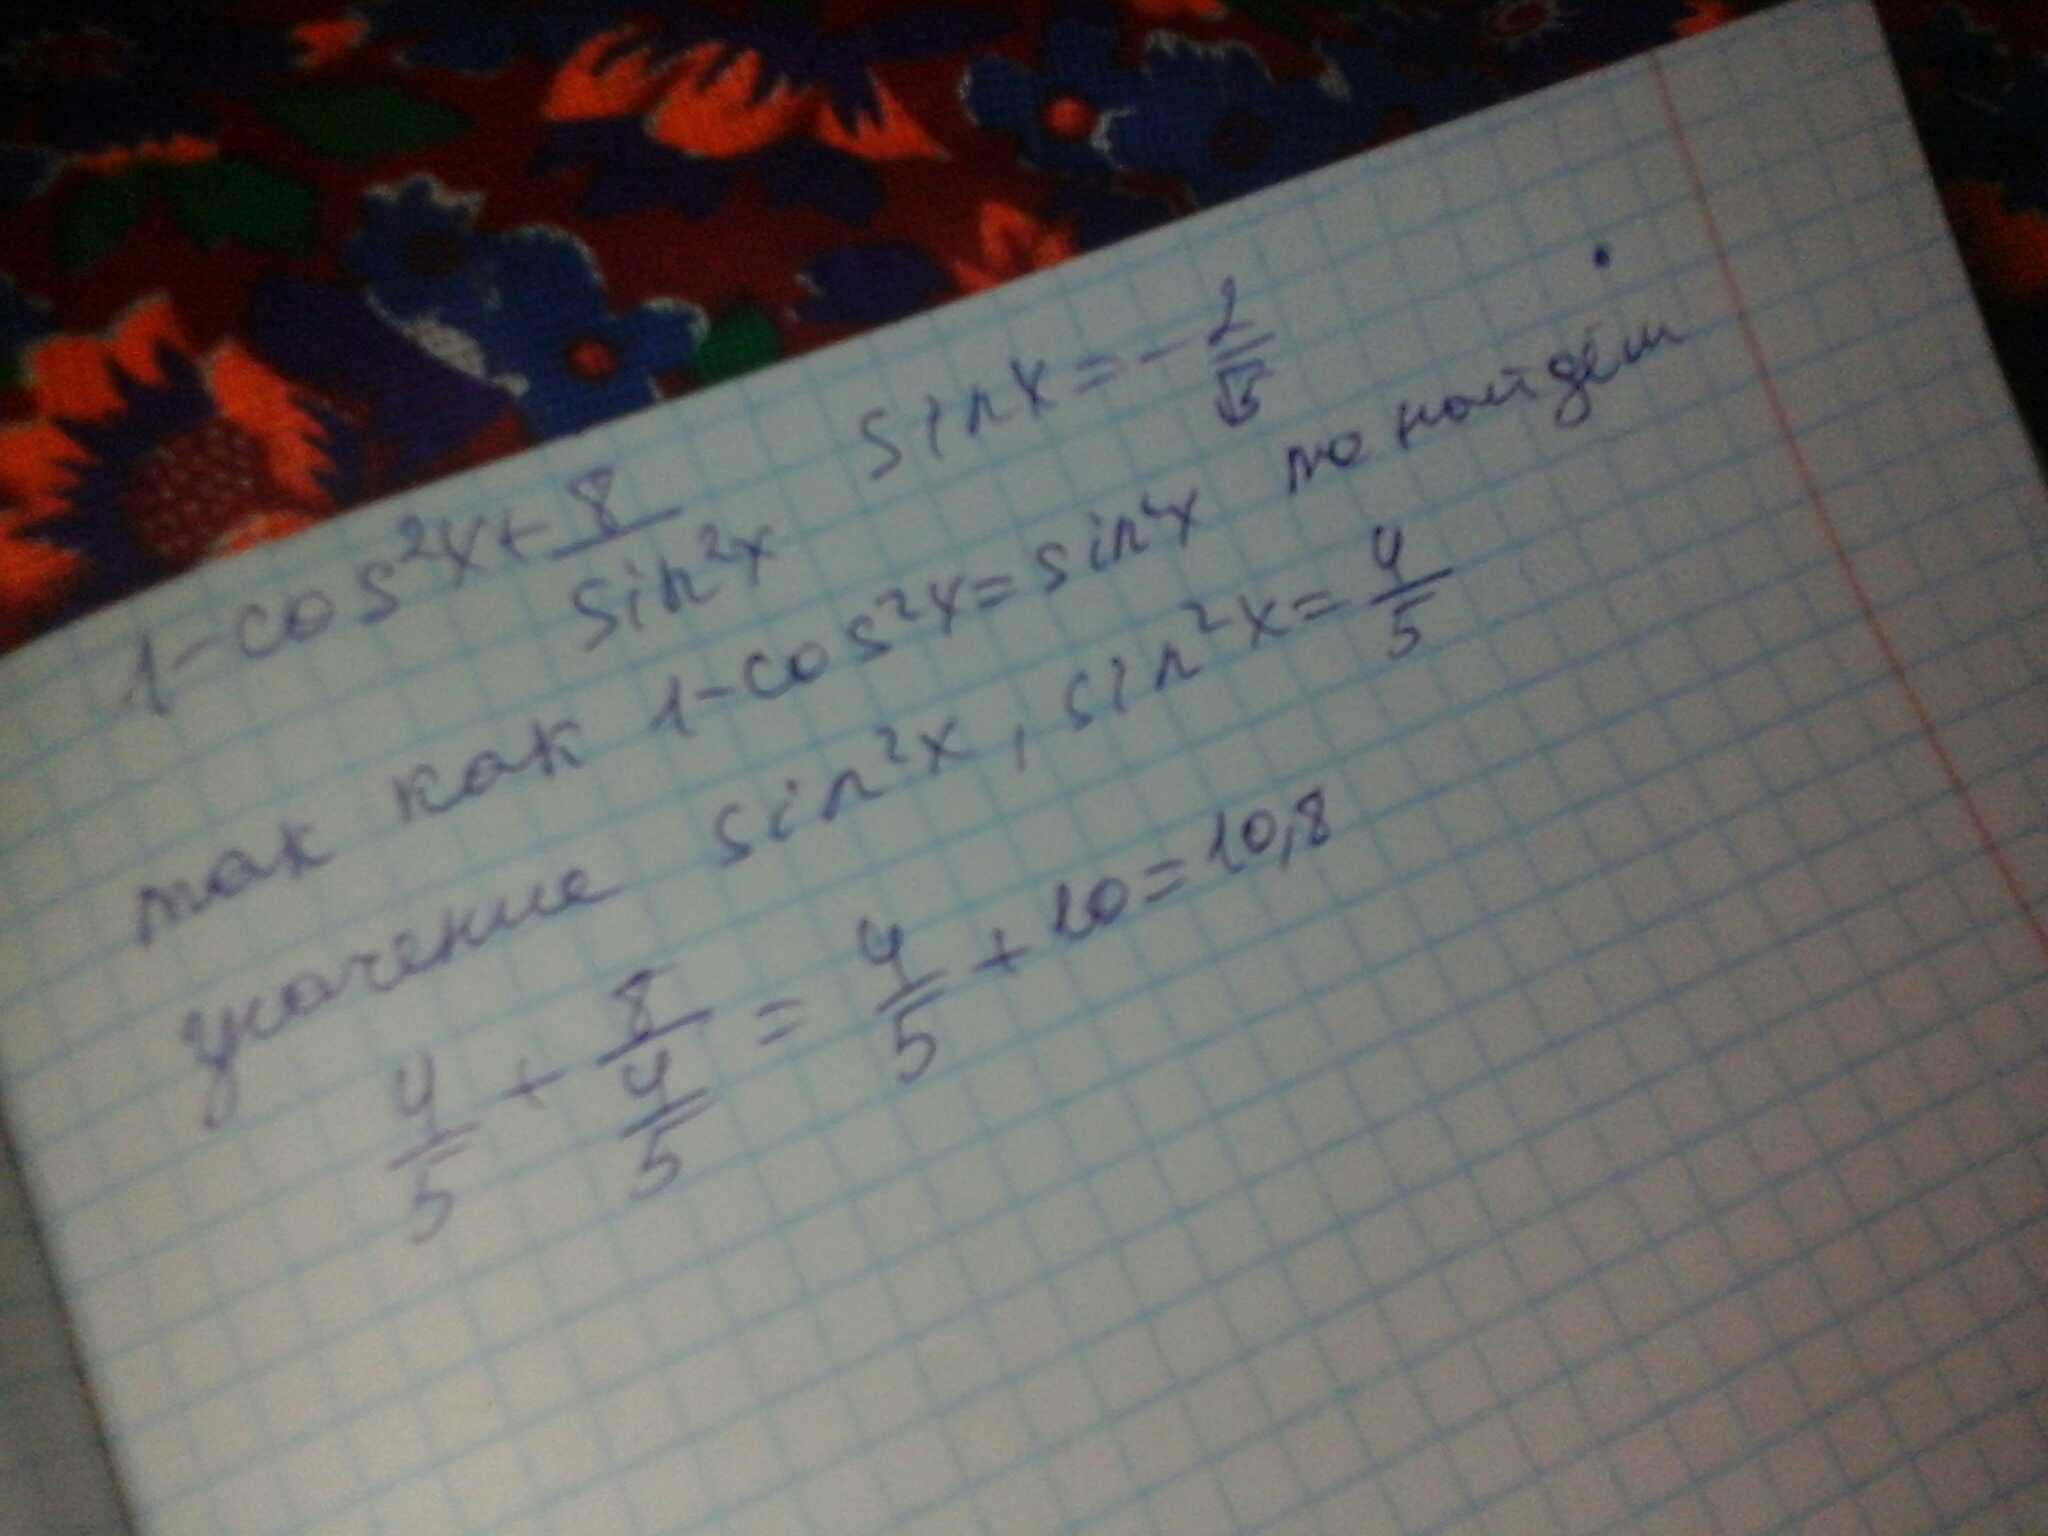 1-cos²x+8/sin²x sinx=-2/√5
так как 1-cos²x=sin²x то найдём
значение sin²x, sin²x=4/5
4/5+8/(4/5)=4/5+10=10,8